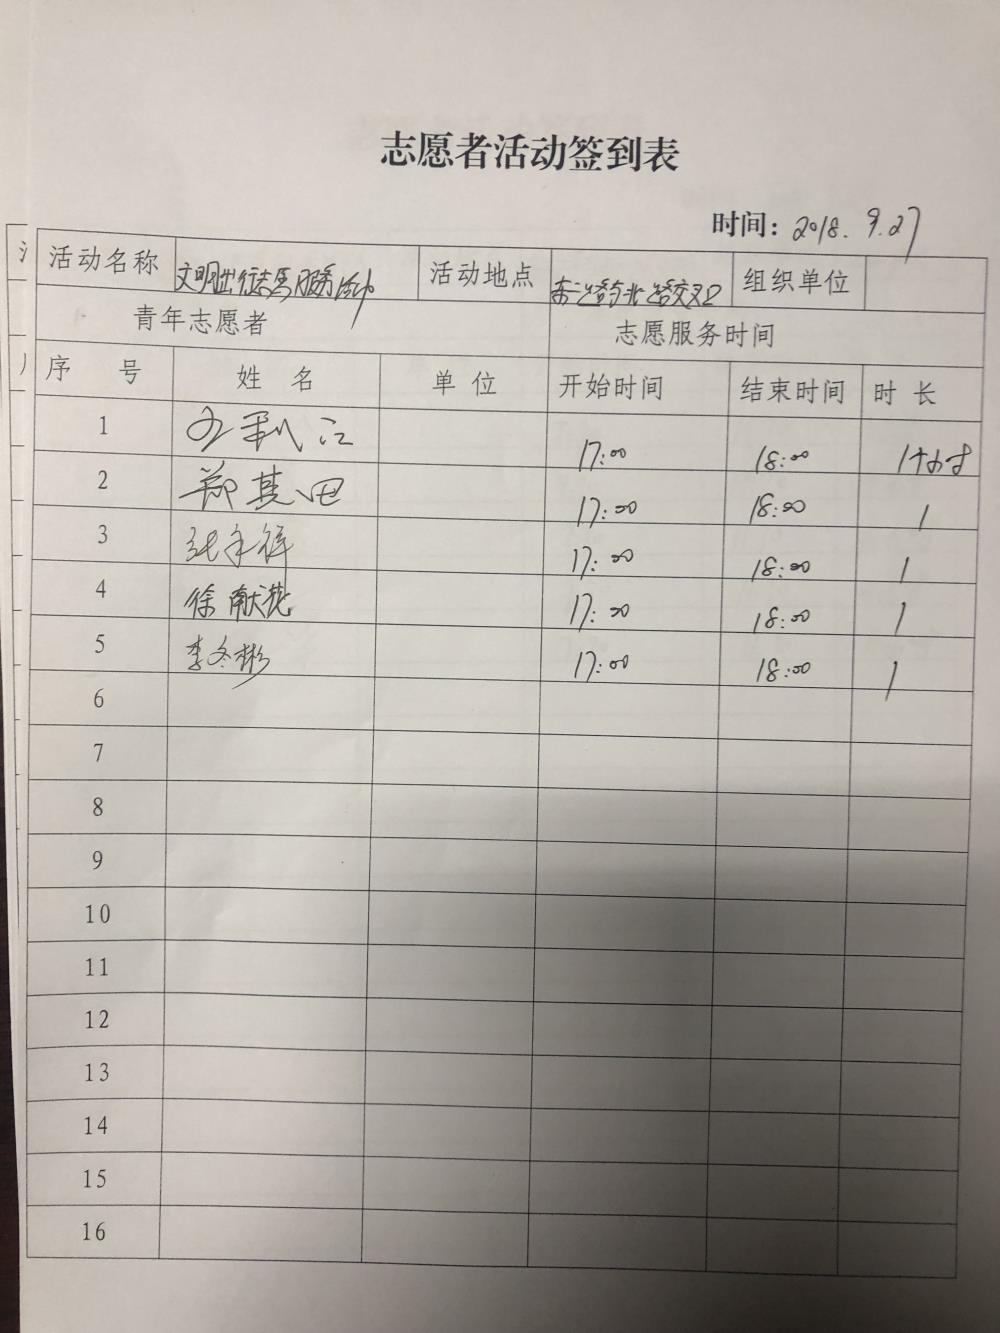 志愿者活动签到表
时间：2018. 9.27
活动名称 文明出行志愿服务活动 活动地点 东二路与北二路交叉口 组织单位
青年志愿者 志愿服务时间
序 号 姓 名 单 位 开始时间 结束时间 时 长
1 利江 17:00 18:00 1小时
2 郑其田 17:00 18:00 1
3 祥 17:00 18:00 1
4 徐献 17:00 18:00 1
5 李冬彬 17:00 18:00 1
6
7
8
9
10
11
12
13
14
15
16